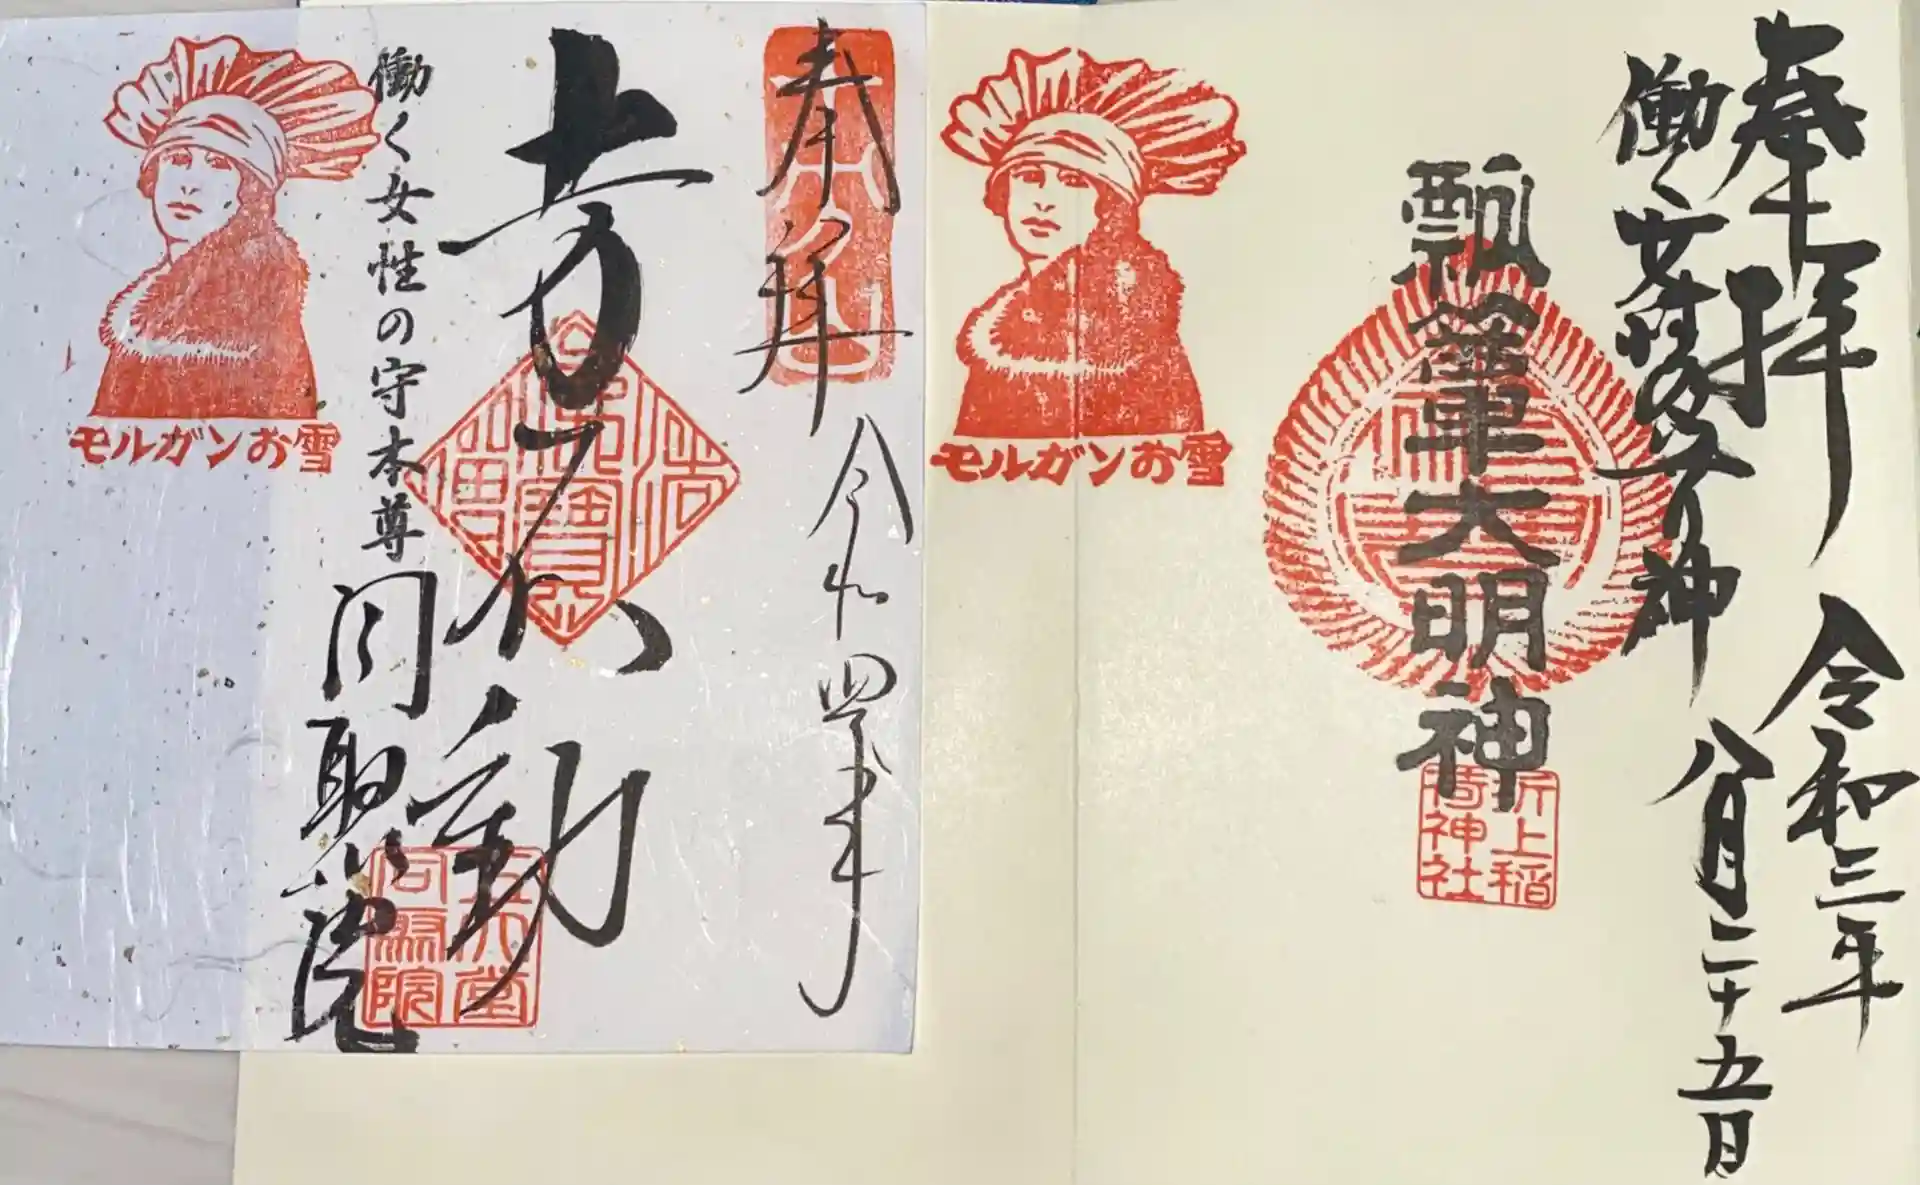 奉拝
令和三年
八月二十五日
働く女性の守り神
瓢箪大明神
折上稲
荷神社
モルガンお雪
奉拝
令和四年
働く女性の守本尊
同聚院
五大堂
同聚院
モルガンお雪